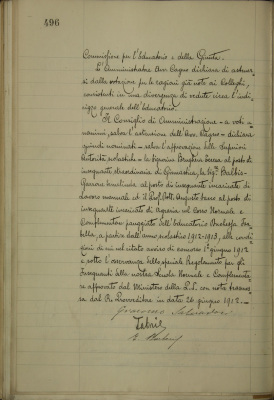 496
Commissione per l'Educatorio e della Giunta.
L'Amministratore Avv. Cagno dichiara di astener-
si dalla votazione per le ragioni già note ai Colleghi,
consistenti in una divergenza di vedute circa l'indi-
rizzo generale dell'Educatorio.
Il Consiglio di Amministrazione - a voti
unanimi, salva l'astensione dell'Avv. Cagno - dichiara
quindi nominati - salva l'approvazione delle Superiori
Autorità scolastiche - la signorina Teresa al posto di
insegnante straordinaria di Ginnastica, la Sig.ra Balbis-
Garrone Ermelinda al posto di insegnante incaricata di
lavoro manuale ed il Prof. Dott. Augusto al posto di
insegnante incaricato di Agraria nel Corso Normale e
Complementare pareggiato dell'Educatorio
, a partire dall'anno scolastico 1912-1913, alle condi-
zioni di cui nel citato avviso di concorso 1° giugno 1912
e sotto l'osservanza dello speciale Regolamento per gli
Insegnanti della nostra Scuola Normale e Complementa-
re approvato dal Ministero della P.I. con nota trasmes-
sa dal R. Provveditore in data 26 giugno 1912.
Giacomo Salvadori